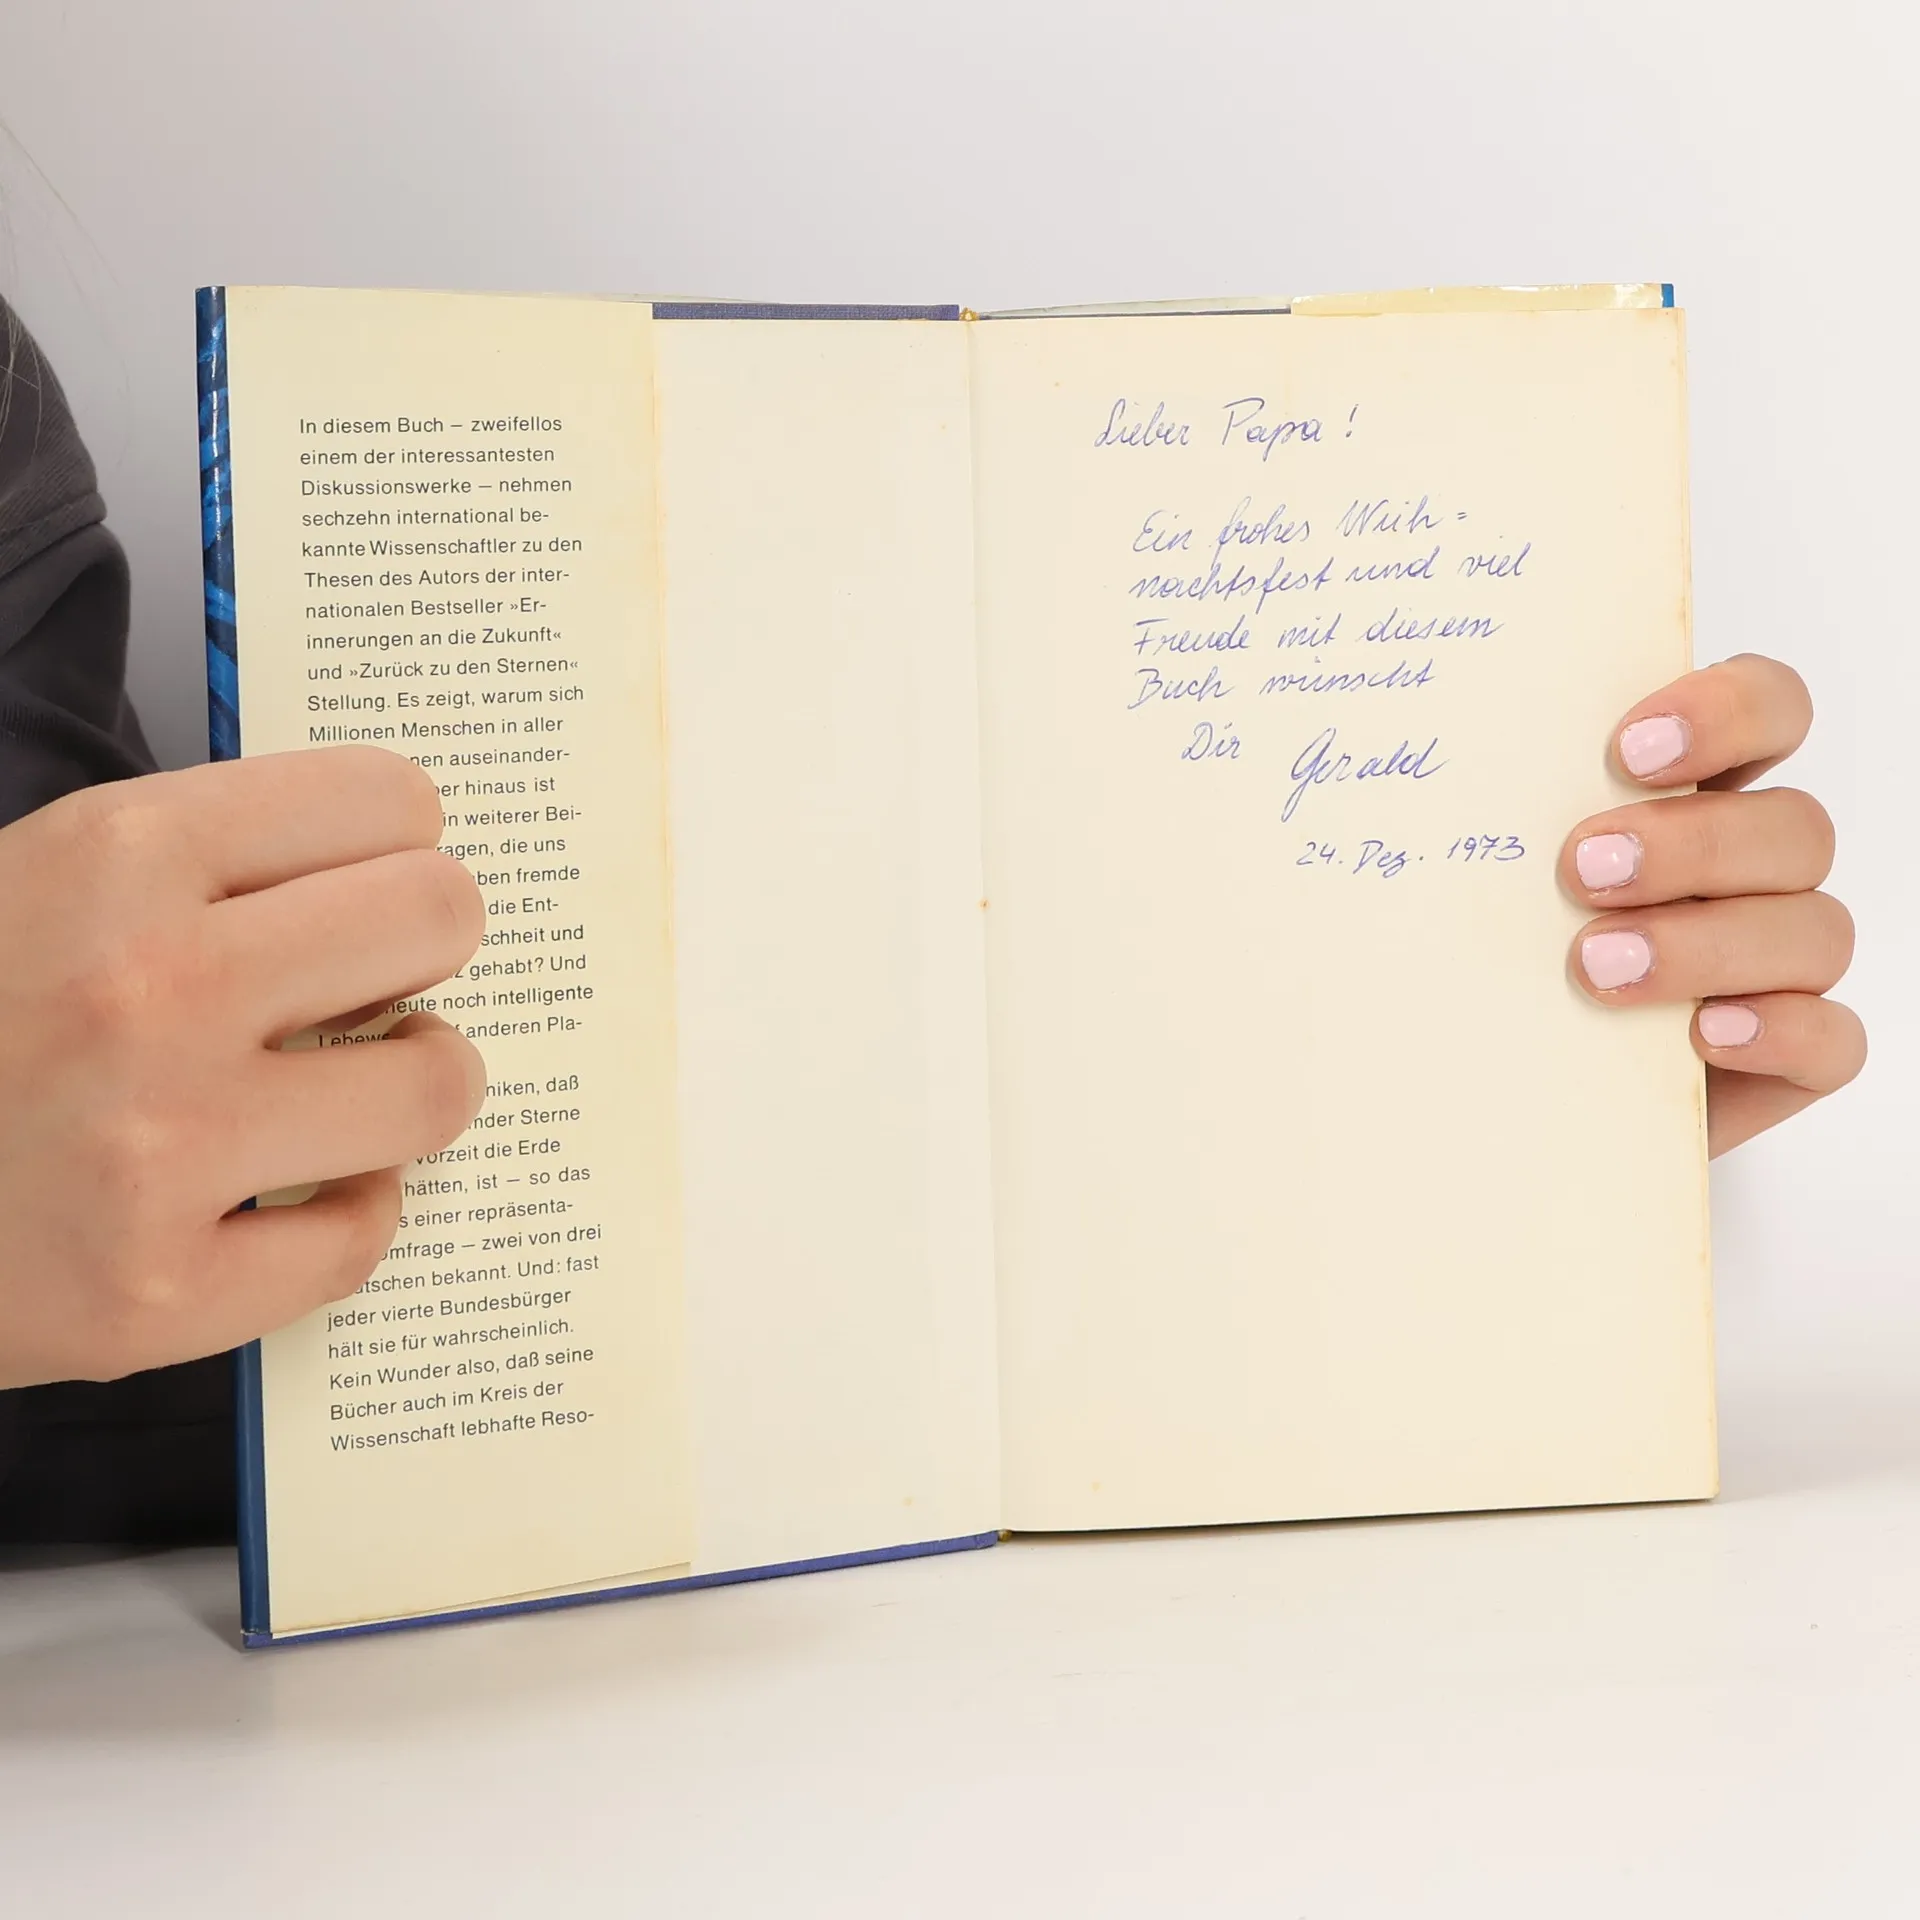 In diesem Buch – zweifellos
einem der interessantesten
Diskussionswerke – nehmen
sechzehn international be-
kannte Wissenschaftler zu den
Thesen des Autors der inter-
nationalen Bestseller »Er-
innerungen an die Zukunft«
und »Zurück zu den Sternen«
Stellung. Es zeigt, warum sich
Millionen Menschen in aller
auseinander-
hinaus ist
weiterer Bei-
die uns
fremde
die Ent-
und
gehabt? Und
heute noch intelligente
anderen Pla-
daß
Sterne
Vorzeit die Erde
hätten, ist – so das
einer repräsenta-
– zwei von drei
bekannt. Und: fast
jeder vierte Bundesbürger
hält sie für wahrscheinlich.
Kein Wunder also, daß seine
Bücher auch im Kreis der
Wissenschaft lebhafte Reso-
Lieber Papa !
Ein frohes Weih =
nachtsfest und viel
Freude mit diesem
Buch wünscht
Dir Gerald
24. Dez. 1973